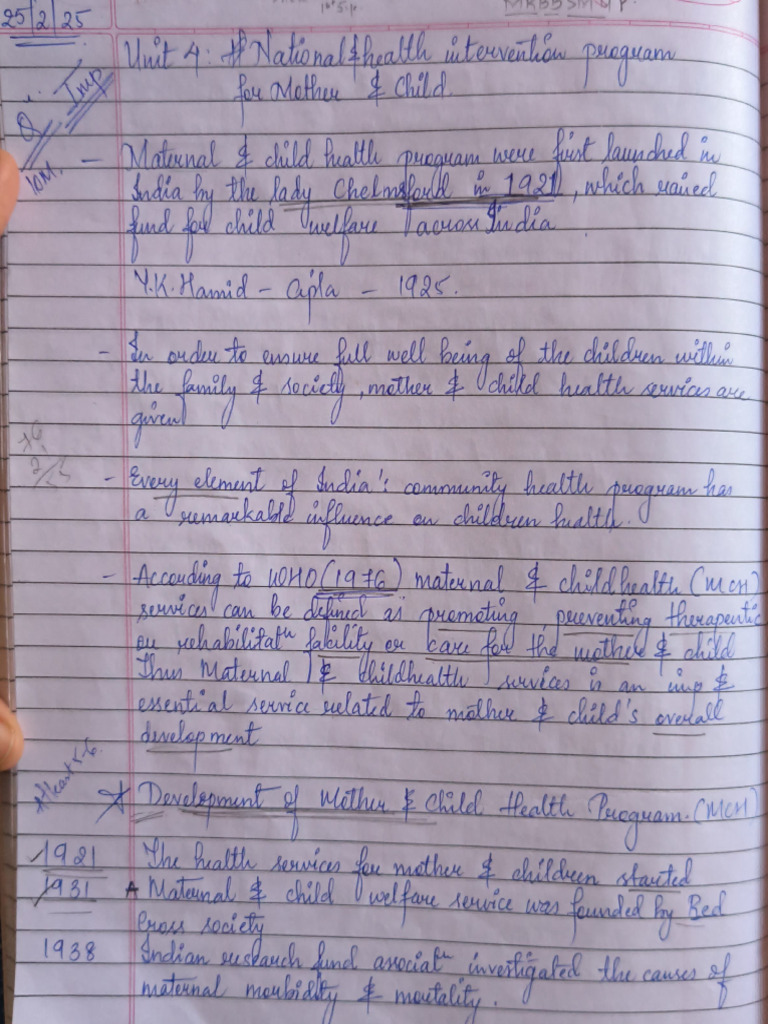 25/2/25
Unit 4: # National & health intervention program
for Mother & Child.
Q. Imp
10M.
- Maternal & child health program were first launched in
India by the lady Chelmsford in 1921, which raised
fund for child welfare across India
Y.K. Hamid - Cipla - 1925.
- In order to ensure full well being of the children within
the family & society, mother & child health services are
given
- Every element of India's community health program has
a remarkable influence on children health.
- According to WHO (1976) maternal & childhealth (MCH)
services can be defined as promoting, preventing therapeutic
or rehabilitatn facility or care for the mother & child
Thus Maternal & childhealth services is an imp &
essential service related to mother & child's overall
development
* Development of Mother & Child Health Program. (MCH)
1921 The health services for mother & children started
1931 Maternal & child welfare service was founded by Red
Cross society
1938 Indian research fund associatn investigated the causes of
maternal morbidity & mortality.